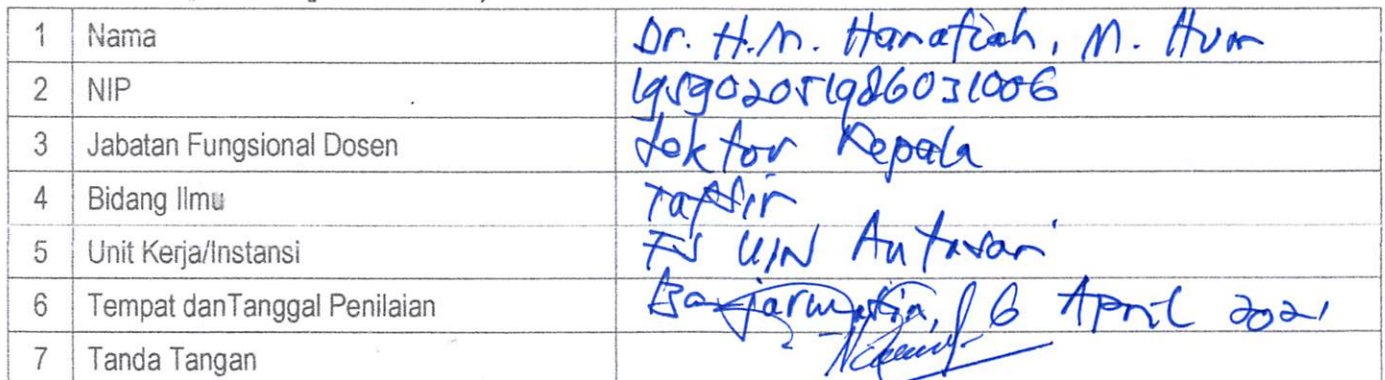 1 Nama Dr. H.M. Hanafiah, M. Hum
2 NIP 195902051986031006
3 Jabatan Fungsional Dosen Lektor Kepala
4 Bidang Ilmu Tafsir
5 Unit Kerja/Instansi FS UIN Antasari
6 Tempat danTanggal Penilaian Banjarmasin, 6 April 2021
7 Tanda Tangan